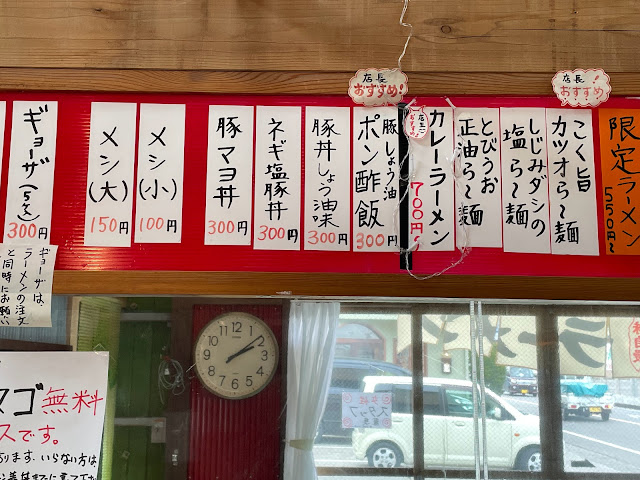 店長
おすすめ!
店長
おすすめ!
限定ラーメン
550円〜
こく旨
カツオら〜麺
しじみダシの
塩ら〜麺
とびうお
正油ら〜麺
カレーラーメン
700円〜
豚しょう油
ポン酢飯
300円
豚丼しょう油味
300円
ネギ塩豚丼
300円
豚マヨ丼
300円
メシ(小)
100円
メシ(大)
150円
ギョーザ(5ヶ)
300円
ギョーザは
ラーメンの注文
と同時にお願い
無料
スです。
あります。いらない方は
12
1
2
3
4
5
6
7
8
9
10
11
スタッフ
ラーメン